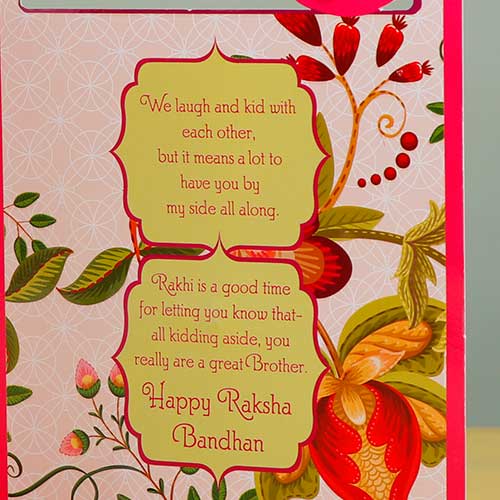 We laugh and kid with
each other,
but it means a lot to
have you by
my side all along.
Rakhi is a good time
for letting you know that–
all kidding aside, you
really are a great Brother.
Happy Raksha
Bandhan